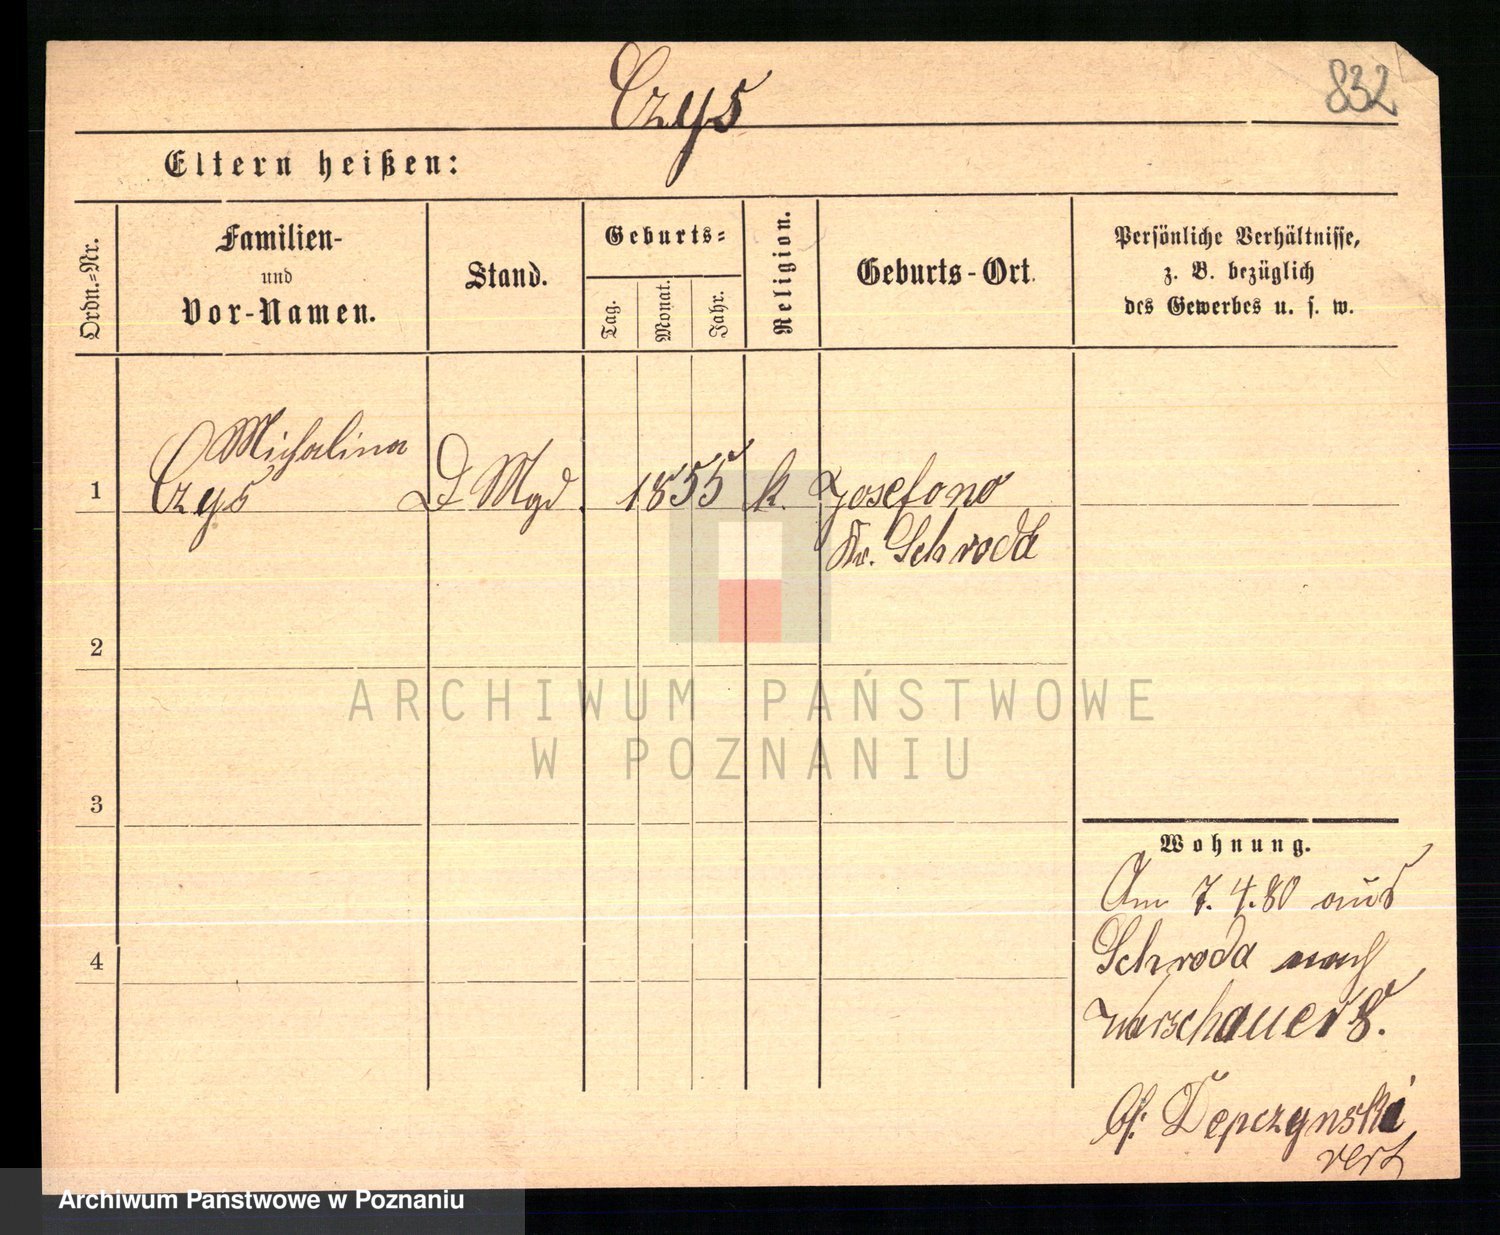 Czys
832
Eltern heißen:
Ordn.=Nr.
Familien-
und
Vor-Namen.
Stand.
Geburts=
Tag.
Monat.
Jahr.
Religion.
Geburts-Ort.
Persönliche Verhältnisse,
z. B. bezüglich
des Gewerbes u. s. w.
Michalina
1 Czys D Mgd. 1855 k. Josefono
Kr. Schroda
2
3
4
Wohnung.
Am 7.4.80 aus
Schroda nach
Warschauer 8.
bf. Depczynski
vert
ARCHIWUM PAŃSTWOWE
W POZNANIU
Archiwum Państwowe w Poznaniu